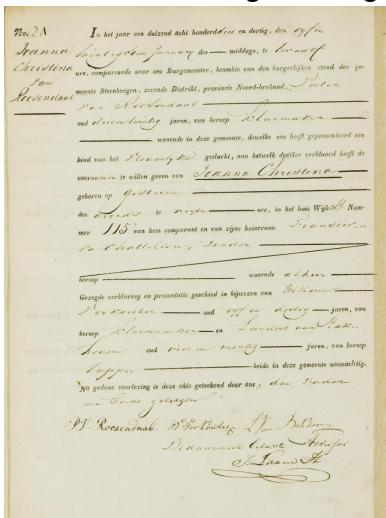 No: 21
Joanna
Christina
van
Roosendaal
In het jaar een duizend acht honderd drie en dertig, den vyf en
twintigsten January des middags, te twaalf
ure, compareerde voor ons Burgemeester, beambte van den burgerlijken stand der ge-
meente Steenbergen, zevende Distrikt, provincie Noord-braband, Pieter
van Roosendaal
oud drie en twintig jaren, van beroep kleermaker
wonende in deze gemeente, dewelke ons heeft gepresenteerd een
kind van het Vrouwelyke geslacht, aan hetwelk dezelve verklaard heeft de
voornamen te willen geven van Joanna Christina
geboren op gisteren
des avonds te negen ure, in het huis Wijk B Num-
mer 115 van hem comparant en van zijne huisvrouw
zonder
beroep wonende alhier
Gezegde verklaring en presentatie geschied in bijwezen van Willem
Verkouter oud vyf en dertig jaren, van
beroep kleermaker en van
hoven oud vier en veertig jaren, van beroep
tapper beide in deze gemeente woonachtig.
Na gedane voorlezing is deze akte geteekend door ons, den Vader
en beide getuigen
P:V: Roosendaal. W Verkouter L Van
De daartoe